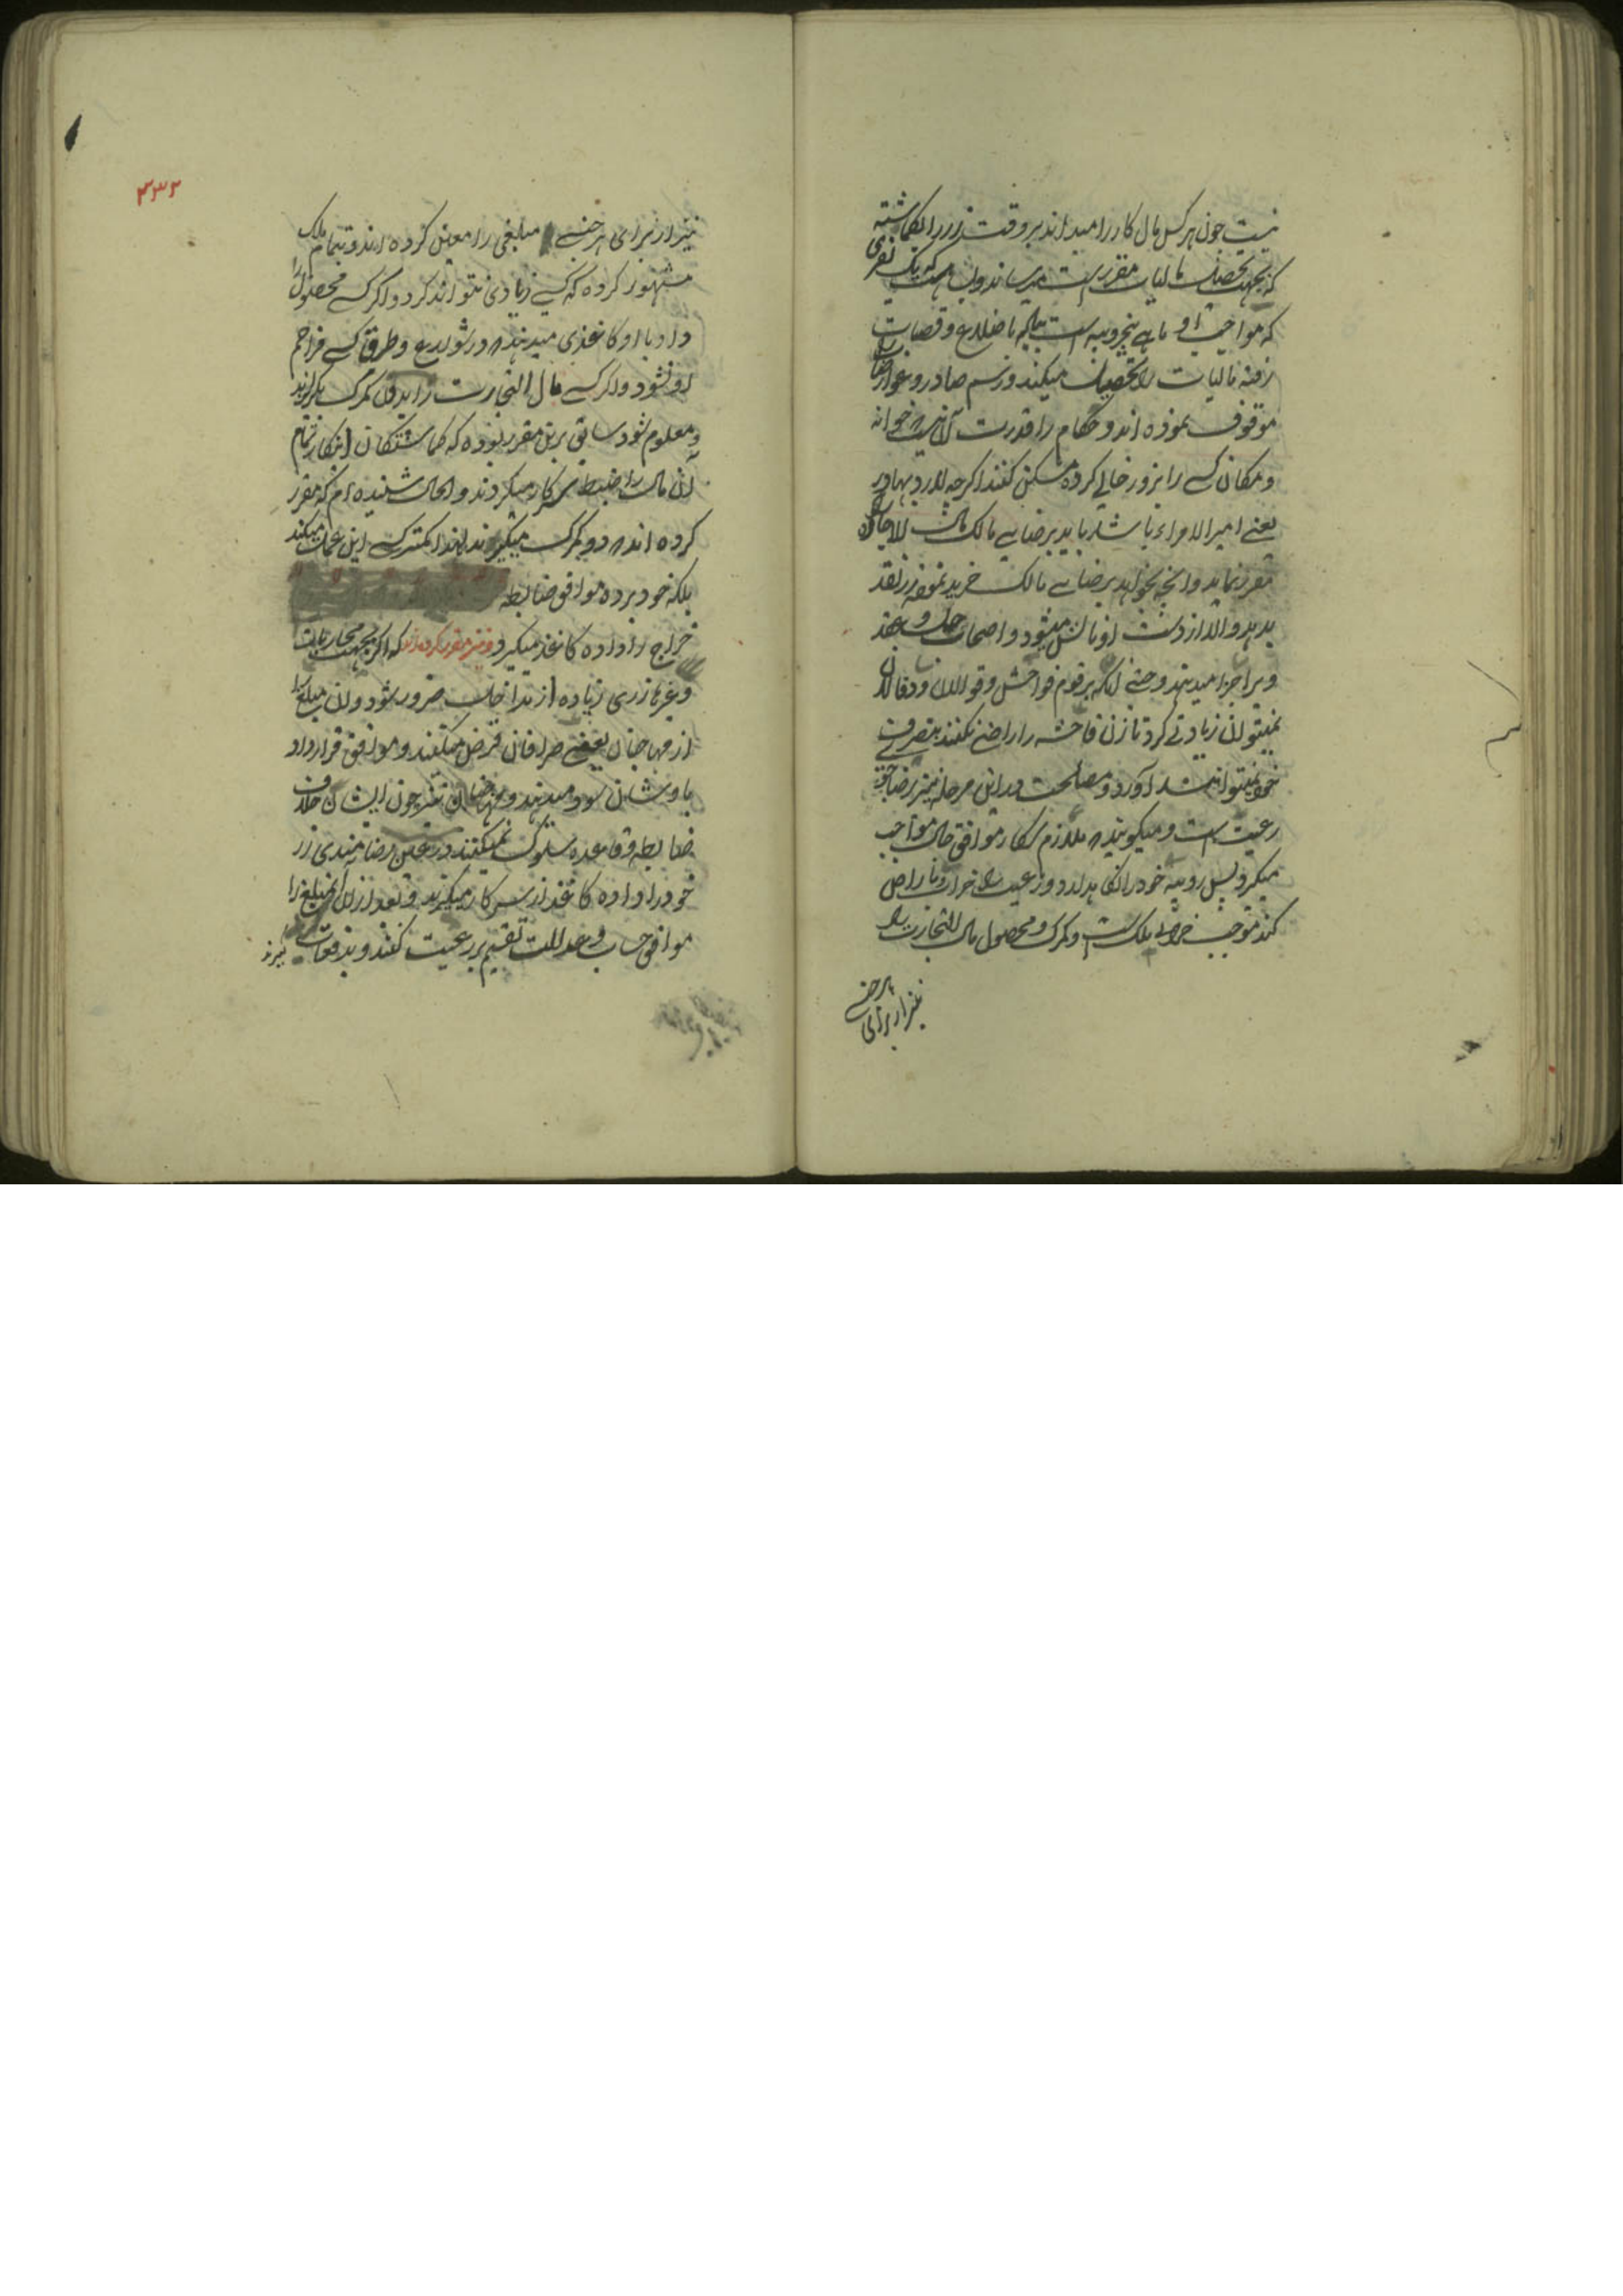 نیست چون هر کس مال کار را میداند بر وقت زر را بکماشته
که بجهت تحصیل مالیات مقرر است میرساند و بسا هست که یک نفری
که مواجب او ماهی پنجروپیه است بیکبه باضلاع و قصبات
رفته مالیات را تحصیل میکند و رسم صادر و عوارضات را
موقوف نموده اند و حکام را قدرت آن نیست خوانه
و مکان کسی را بزور خالی کرده مسکن کنند اکرچه لارد بهادر
یعنی امیر الامراء باشد باید برضای مالک مال الاجاره
مقرر نماید و آنچه بخواهد برضای مالک خرید نموده زر نقد
بدهد و الا از دست او نالش میشود و اصحاب حل و عقد
ویرا جزا میدهند و حتی آنکه بر قوم فواحش و قوالان و دفالان
نمیتوان زیادتی کرد تا زن فاحشه را راضی نکنند بتصرف
خود نمیتوانند آورد و مصلحت در این مرحله نیز رضا جوی
رعیت است و میکویند که ملازم سرکار موافق حال مواجب
میکیرد پس روپیه خود را نکاهدارد و رعیت را خراب و ناراض
کند موجب خرابی ملک است و کمرک و محصول مال التجارت را
نیز از برای هر جنسی
۳۳۲
نیز از برای هر جنسی مبلغی را معین کرده اند و بتمام ملک
مشهور کرده که کسی زیادی نتواند کرد و اکر کسی محصول را
داد باو کاغذی میدهند که در شوارع و طرق کسی مزاحم
او نشود و اکر کسی مال التجارت را بدون کمرک بکذراند
و معلوم شود سابق برین مقرر بوده که کماشتکان اینکار تمام
آن مال را ضبط سرکار میکردند و الحال شنیده ام که مقرر
کرده اند که دو کمرک میکیرند لهذا کمتر کسی این عمل میکند
بلکه خود برده موافق ضابطه
خراج را داده کاغذ میکیرد و نیز مقرر کرده اند که اکر بجهت محاربات
و غیرها زری زیاده از مداخل ضرور شود و آن مبلغ را
از مهاجنان یعنی صرافان قرض میکنند و موافق قرارداد
باوشان سود میدهند و مهاجنان نیز چون ایشان خلاف
ضابطه و قاعده سلوک نمیکنند در عین رضامندی زر
خود را داده کاغذ از سرکار میکیرند و بعد از آن آنمبلغ را
موافق حساب و عدالت تقسیم بر رعیت کنند و بدفعات